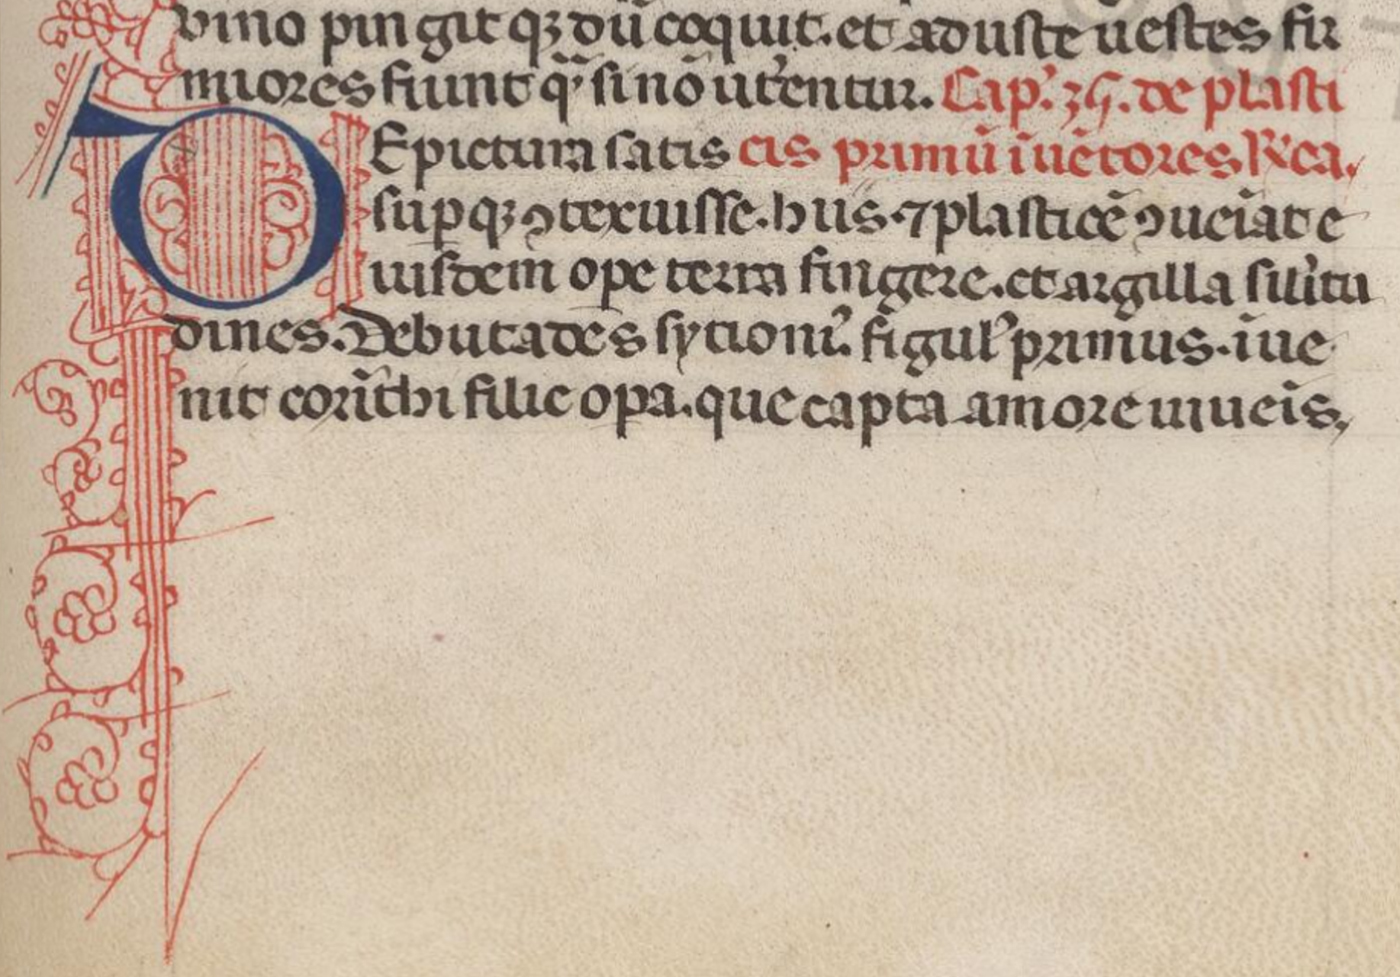 vino pingit qꝫ dū coquit. et aduste uestes fir
miores fiunt qͣ si nō ut̓entur. Cap̓. 35. de plasti
DEpictura satis cis primū īuētores Rca.
supqꝫ ꝯtexuisse. hiis ⁊ plasticē ꝯueīat e
iusdem ope terra fingere. et argilla silītu
dines. Debutades sytioni᷒ figul᷒ primus. īue
nit corīthi filie opa. que capta amore iuueīs,